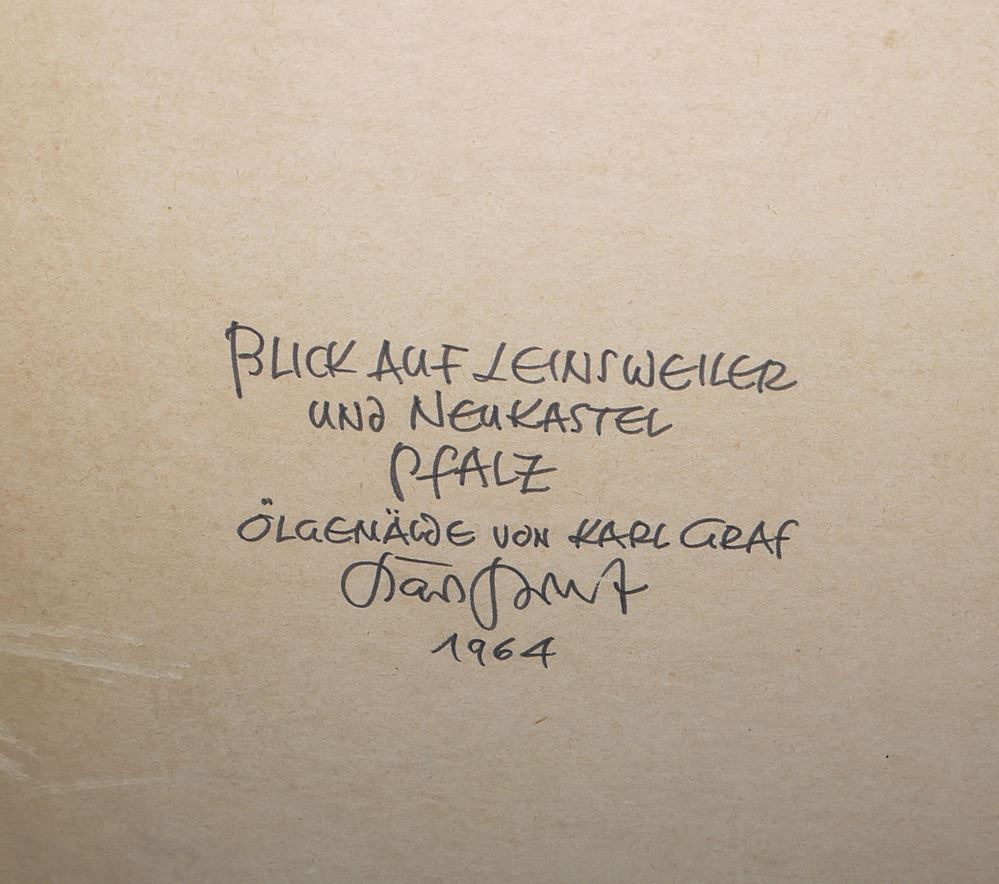 BLICK AUF LEINSWEILER
UND NEUKASTEL
PFALZ
ÖLGEMÄLDE VON KARL GRAF
1964